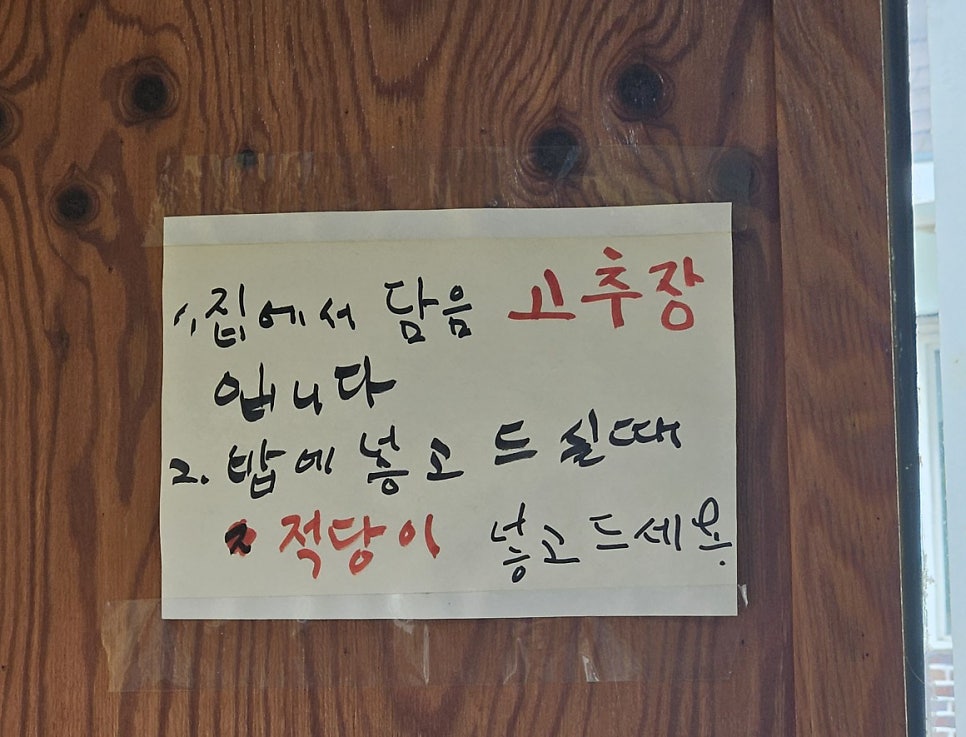 1. 집에서 담음 고추장
입니다
2. 밥에 넣고 드실때
적당이 넣고드세요.